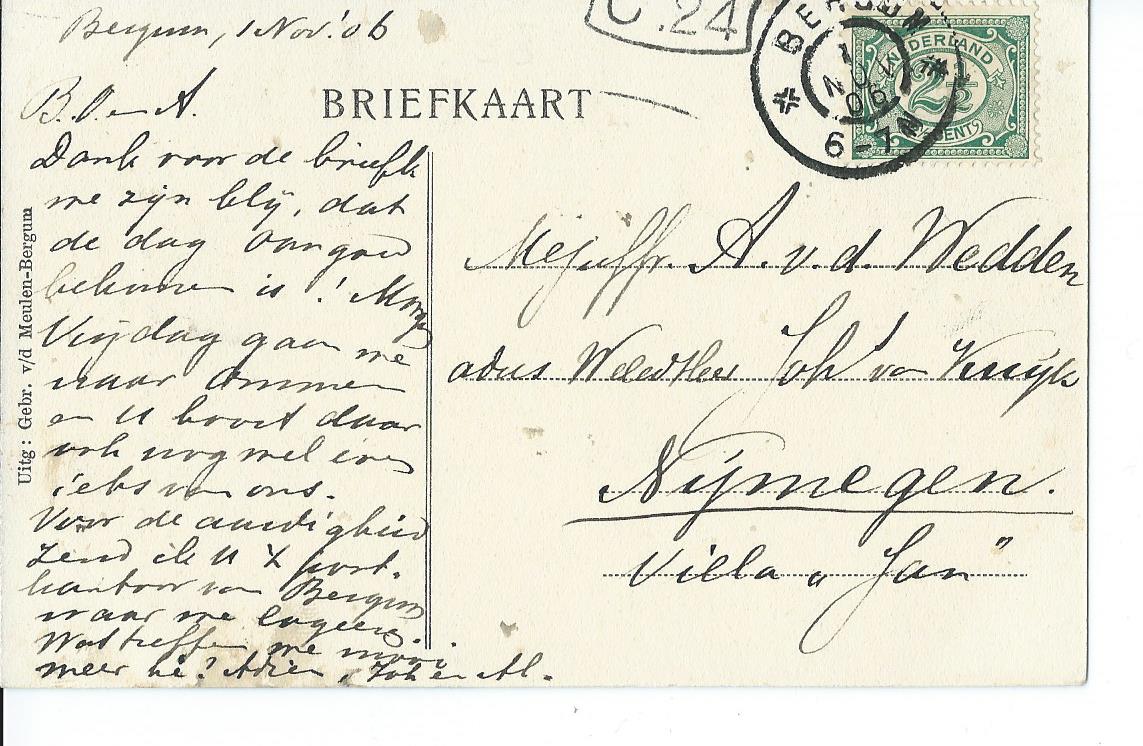 Bergum, 1 Nov. '06
C.24
BERGUM
1
NOV
06
6-7N
NEDERLAND
2½
CENT
BRIEFKAART
B. O en A.
Dank voor de briefk
we zijn blij, dat
de dag
bekomen is! Morgen
Vrijdag gaan we
naar Ommen
en U hoort daar
ook nog wel even
iets van ons.
Voor de aardigheid
zend ik U 't post.
kantoor van Bergum
waar we logeeren.
Wat treffen we mooi
weer hè? Adieu, Joh en Al.
Uitg: Gebr. v/d Meulen-Bergum
Mejuffr. A. v. d. Wedden
adres Joh van Kuijk
Nijmegen.
Villa „Jan"